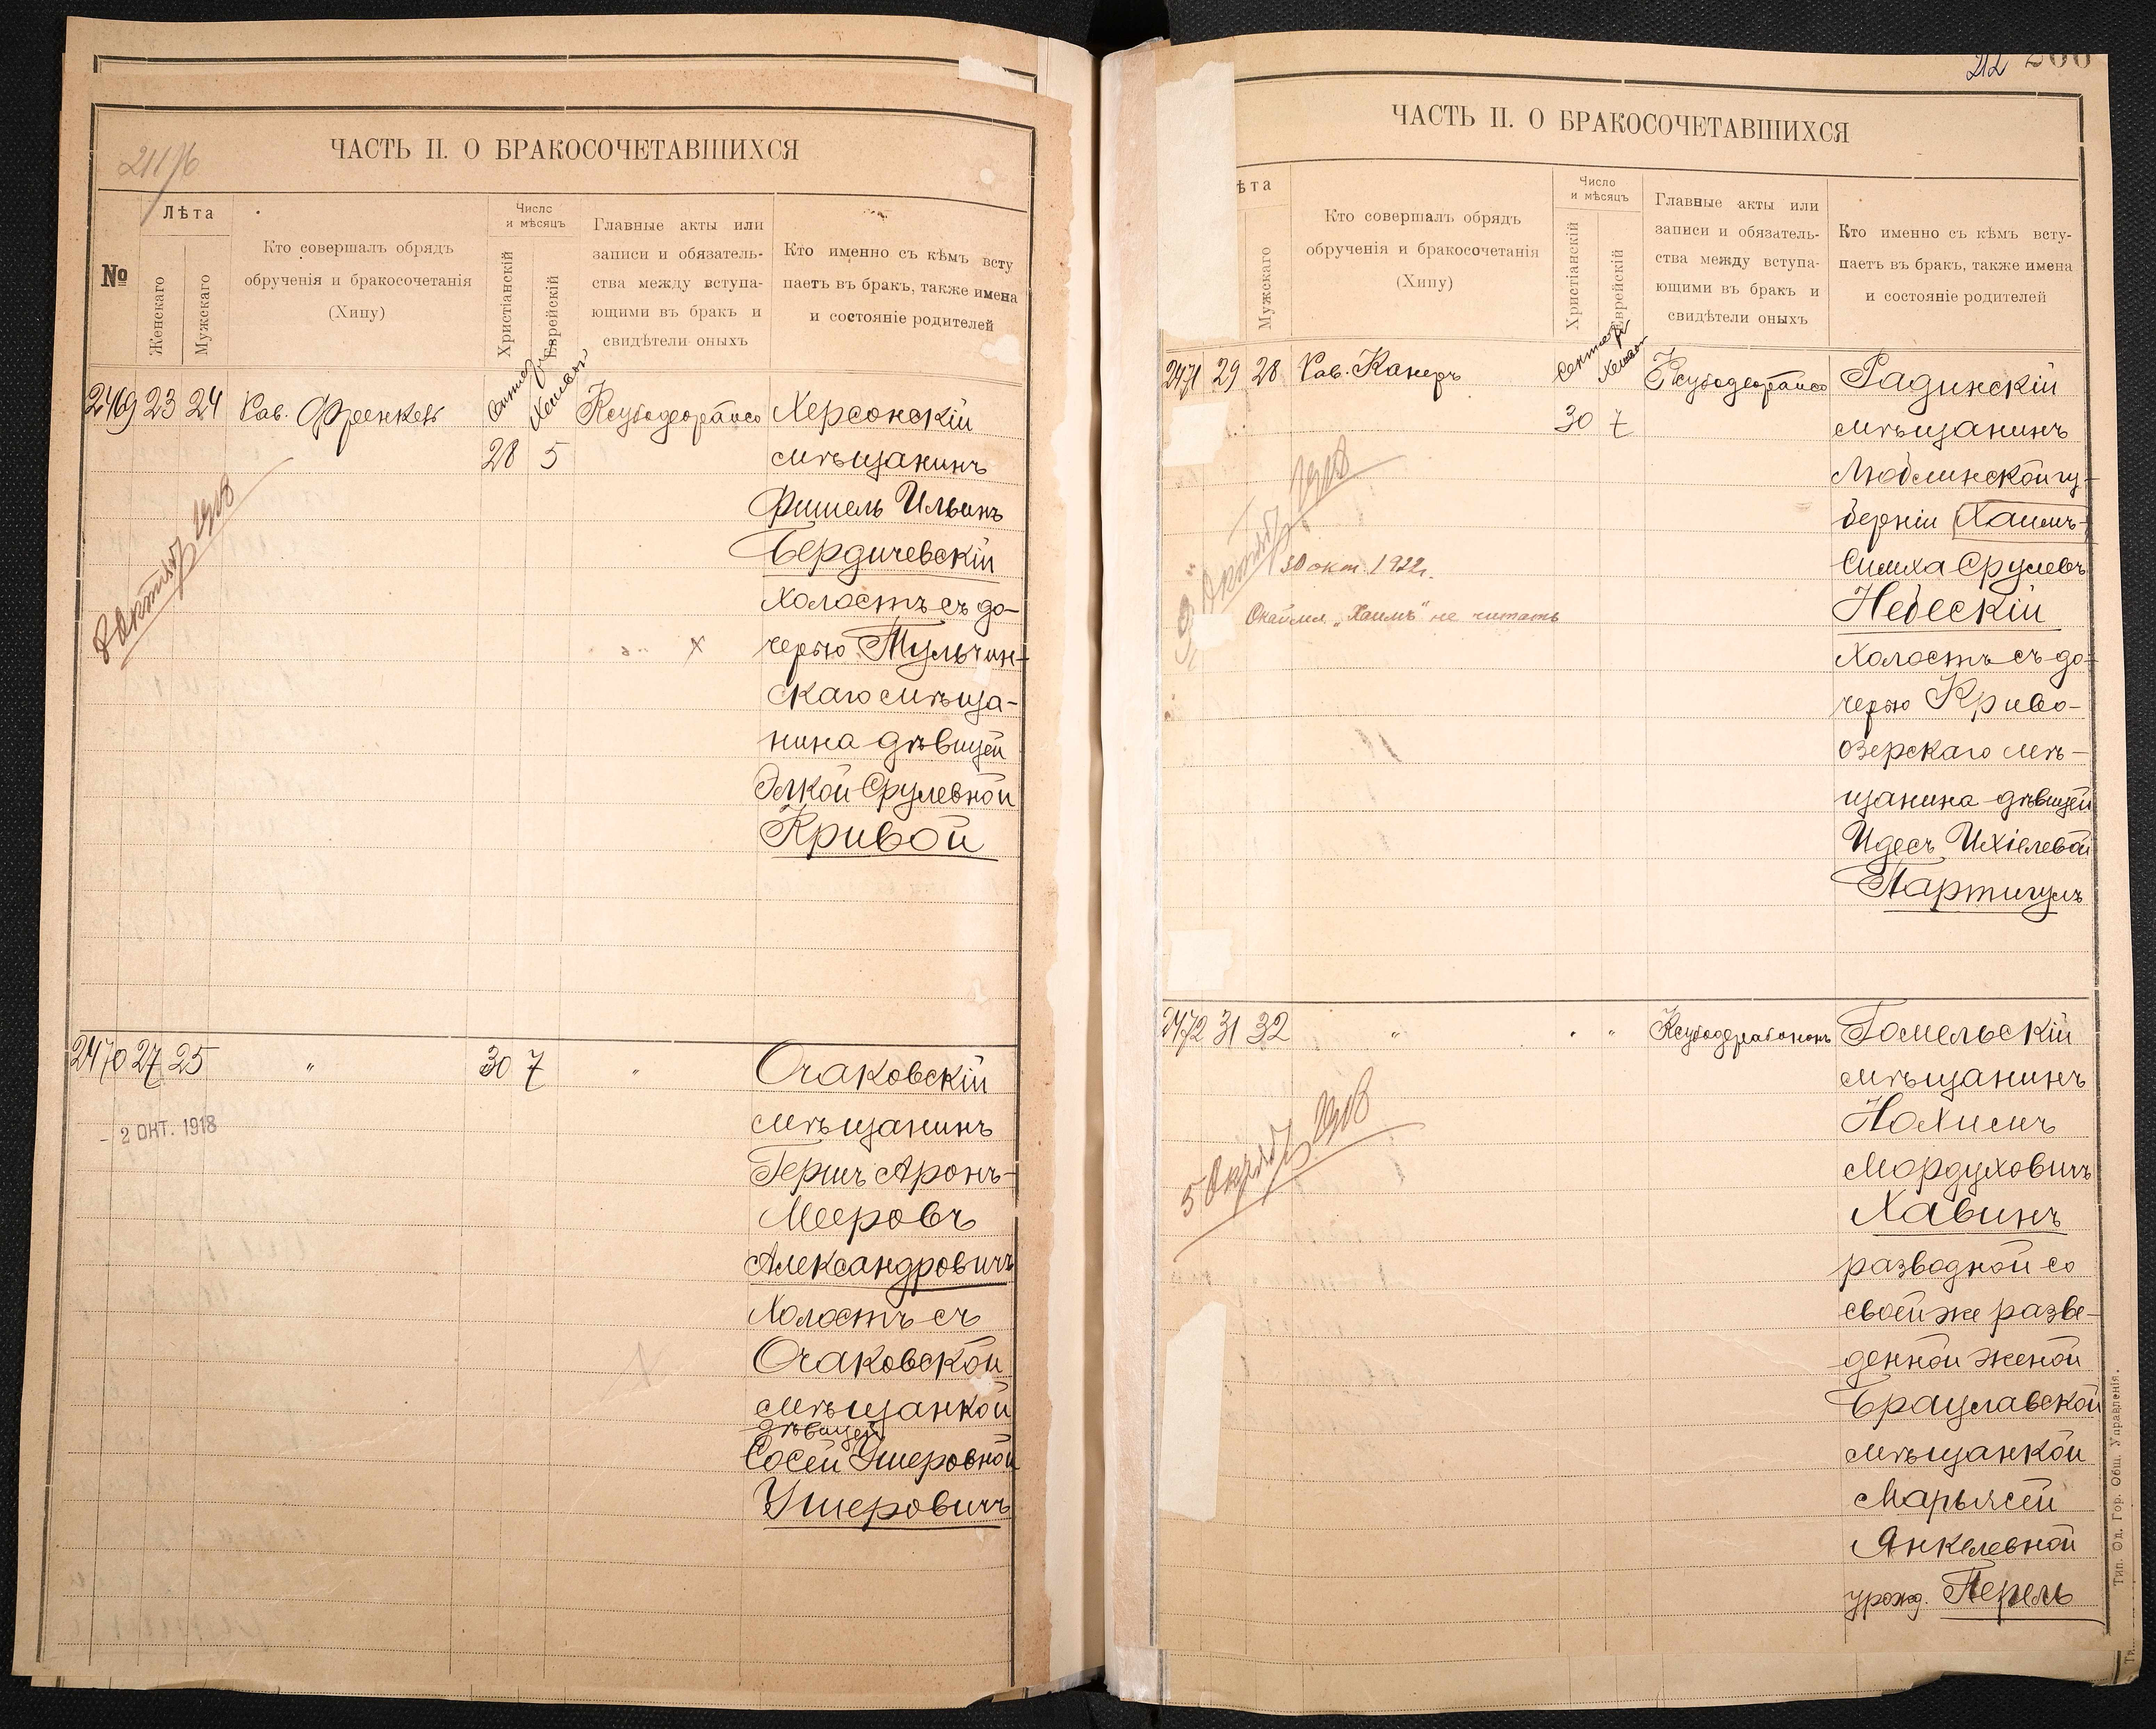 ЧАСТЬ II. О БРАКОСОЧЕТАВШИХСЯ
№
Лѣта
Женскаго
Мужскаго
Кто совершалъ обрядъ
обрученія и бракосочетанія
(Хипу)
Число
и мѣсяцъ
Христіанскій
Еврейскій
Главные акты или
записи и обязатель-
ства между вступа-
ющими въ бракъ и
свидѣтели оныхъ
Кто именно съ кѣмъ всту
паетъ въ бракъ, также имена
и состояніе родителей
2469 23 24 Рав. Френкель
28 5
Херсонскій
мѣщанинъ
Фишель Ильинъ
Бердичевскій
холостъ съ до-
черью Тульчин-
скаго мѣща-
нина дѣвицей
Элкой Срулевной
Кривой
8 Октяб 1918
2470 27 25 " 30 7 "
- 2 ОКТ. 1918
Очаковскій
мѣщанинъ
Гершъ Аронъ-
Мееровъ
Александровичъ
холостъ съ
Очаковской
мѣщанкой
дѣвицей
Сосей Ушеровной
Ушеровичъ
212
ЧАСТЬ II. О БРАКОСОЧЕТАВШИХСЯ
ѣта
Мужскаго
Кто совершалъ обрядъ
обрученія и бракосочетанія
(Хипу)
Число
и мѣсяцъ
Христіанскій
Еврейскій
Главные акты или
записи и обязатель-
ства между вступа-
ющими въ бракъ и
свидѣтели оныхъ
Кто именно съ кѣмъ всту-
паетъ въ бракъ, также имена
и состояніе родителей
2471 29 28 Рав. Канеръ
30 7
Радинскій
мѣщанинъ
Люблинской гу-
берніи Хаимъ-
Симха Срулевъ
Небескій
холостъ съ до-
черью Криво-
озерскаго мѣ-
щанина дѣвицей
Идесъ Ихіелевой
Партигулъ
Октяб 1918
30 окт. 1922г.
Окаймл. „Хаимъ" не читать
2472 31 32 " " "
Гомельскій
мѣщанинъ
Нохимъ
Мордуховичъ
Хавинъ
разводной со
своей же разве-
денной женой
Брацлавской
мѣщанкой
Марьясей
Янкелевной
урожд. Перель
5 Октяб 1918
Тип. Од. Гор. Общ. Управленія.